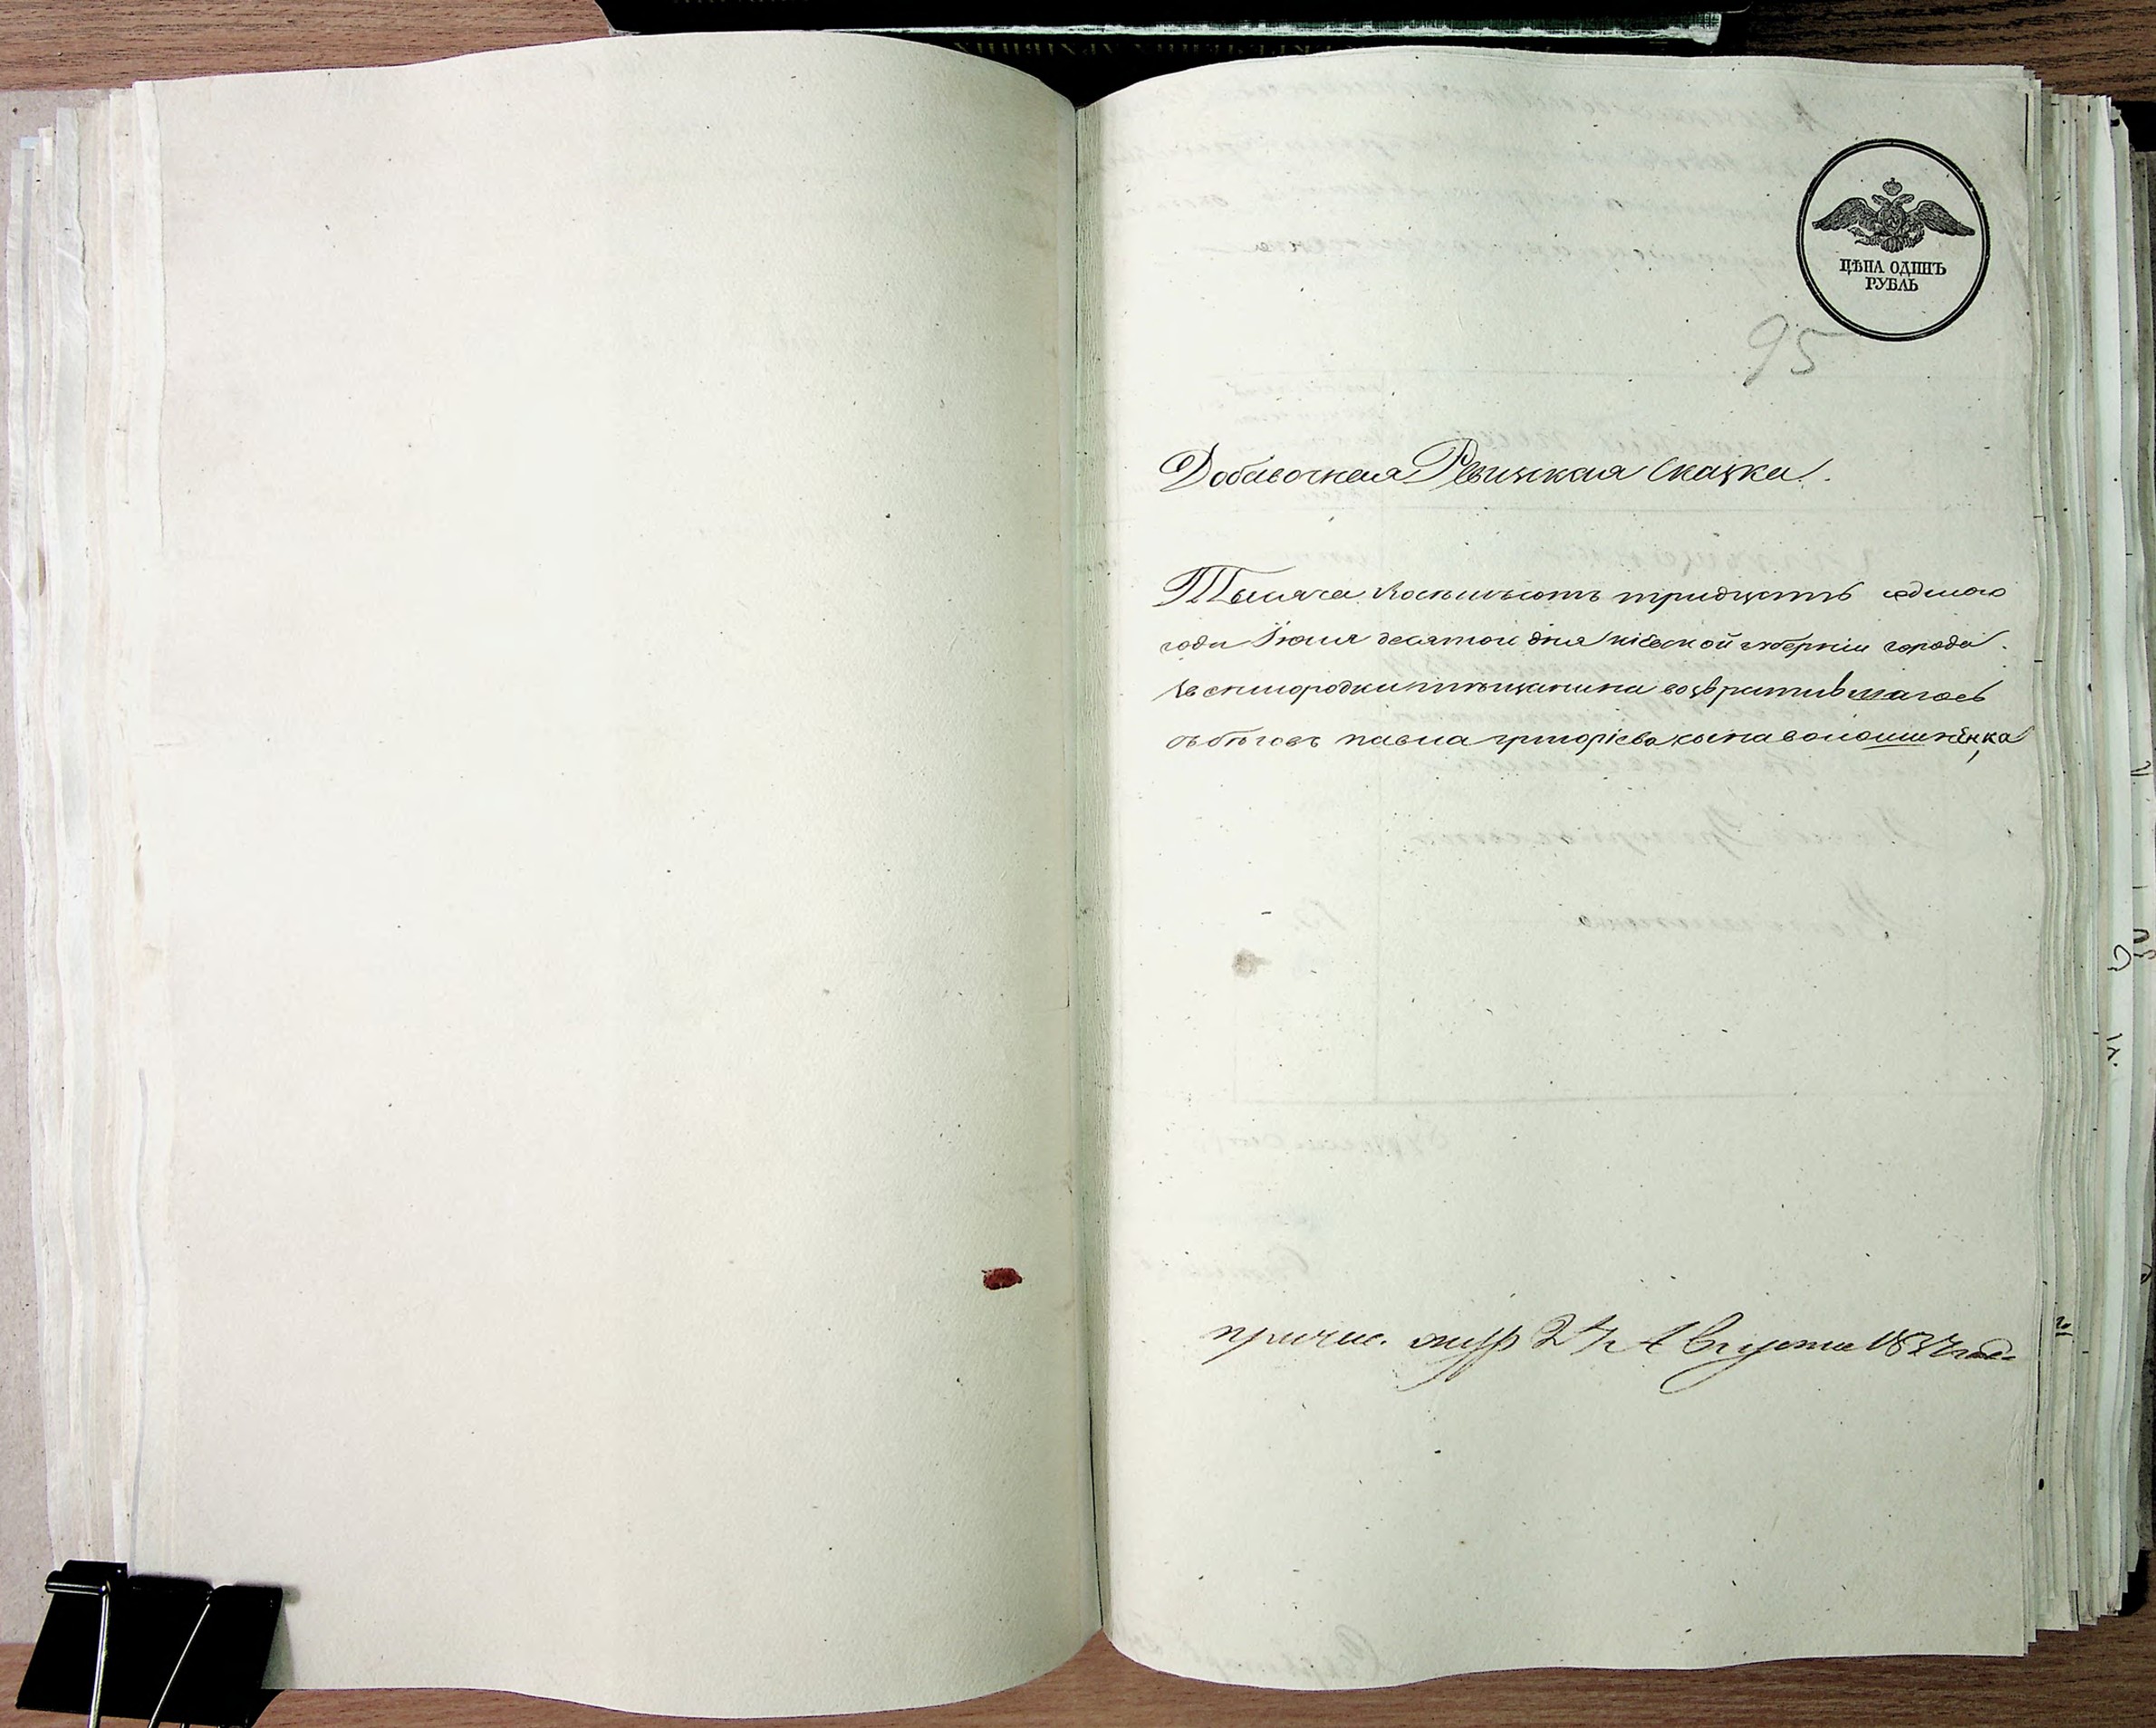 ЦѢНА ОДИНЪ
РУБЛЬ
95
Добавочная Ревизкая Сказка.
Тысяча восѣмьсотъ тридцать седмого
года Іюля десятого дня кіевской губерніи города
Звенигородки мѣщанина возвратившагось
съ бѣговъ павла григоріева сына волошинѣнка
причис. 24 Августа 1837 год